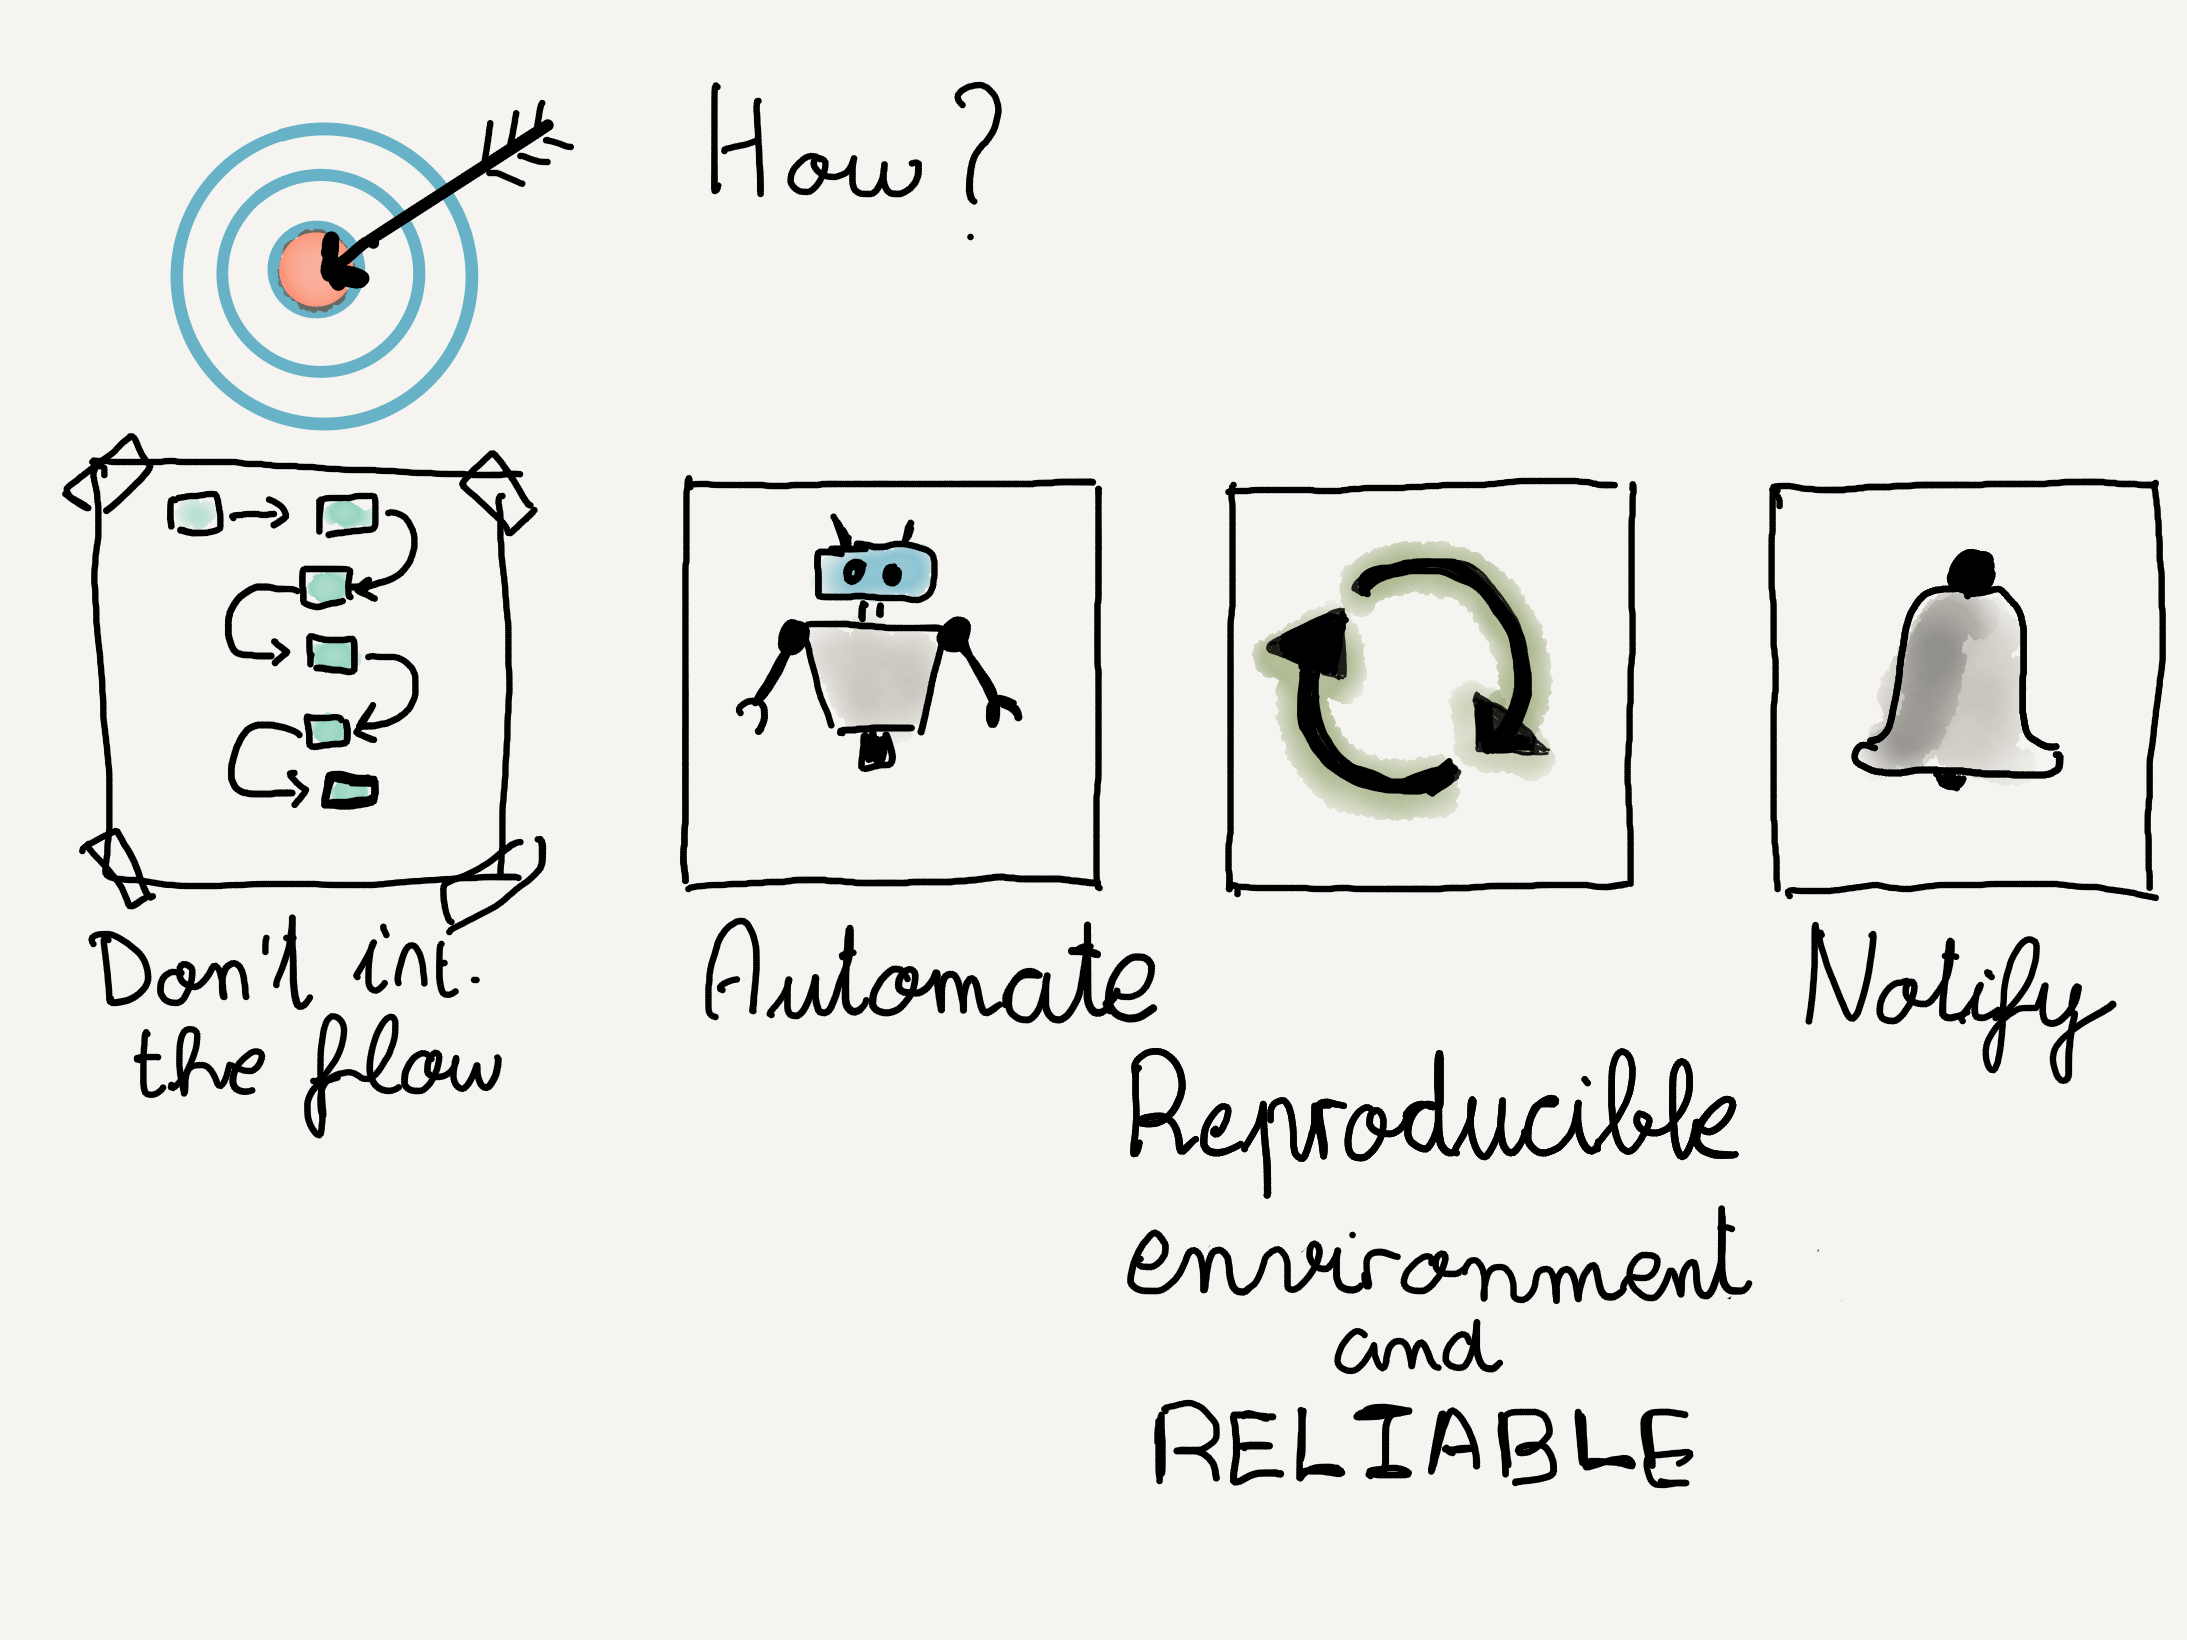 How?
Don't int.
the flow
Automate
Reproducible
environment
and
RELIABLE
Notify